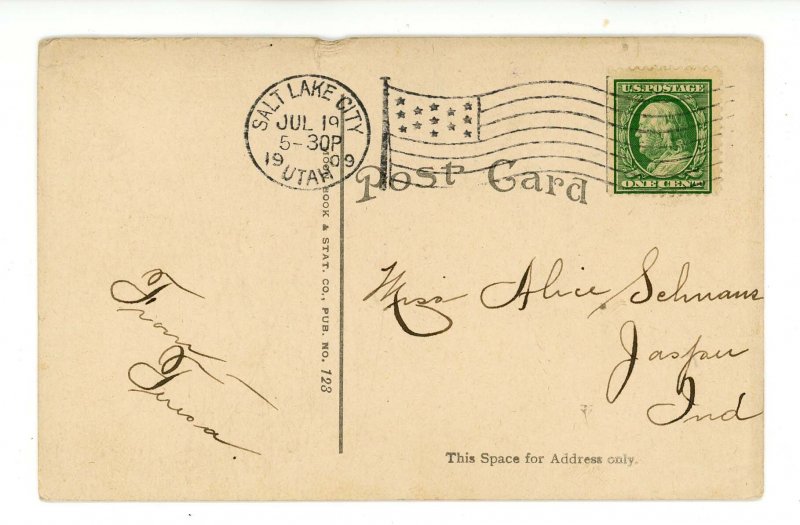 SALT LAKE CITY
JUL 19
5-30P
1909
UTAH
U.S. POSTAGE
ONE CENT
Post Card
BOOK & STAT. CO., PUB. NO. 123
From
Teresa.
Miss Alice Schnaus
Jasper
Ind
This Space for Address only.